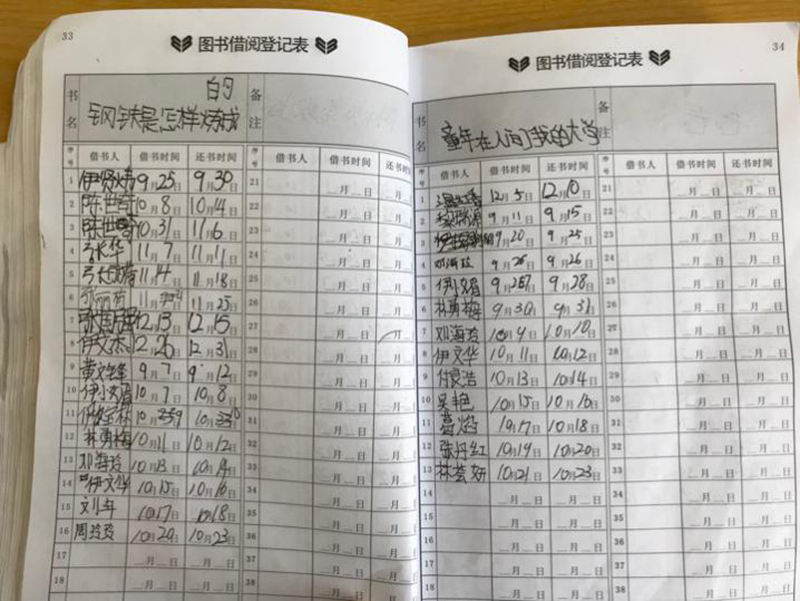 33
图书借阅登记表
书名 钢铁是怎样炼成的 备注
序号 借书人 借书时间 还书时间 序号 借书人 借书时间 还书时间
1 9月25日 9月30日 21 月 日 月 日
2 陈世奇 10月8日 10月14日 22 月 日 月 日
3 陈世奇 10月31日 11月6日 23 月 日 月 日
4 张华 11月7日 11月11日 24 月 日 月 日
5 11月14日 11月18日 25 月 日 月 日
6 11月 日 11月25日 26 月 日 月 日
7 12月13日 12月15日 27 月 日 月 日
8 伊文杰 12月26日 12月31日 28 月 日 月 日
9 9月7日 9月12日 29 月 日 月 日
10 10月7日 10月8日 30 月 日 月 日
11 31 月 日 月 日
12 林勇梅 10月11日 10月12日 32 月 日 月 日
13 邓海玲 10月13日 10月14日 33 月 日 月 日
14 伊文华 10月15日 10月16日 34 月 日 月 日
15 刘年 10月17日 10月18日 35 月 日 月 日
16 周玲玲 10月20日 10月23日 36 月 日 月 日
17 月 日 月 日 37 月 日 月 日
18 月 日 月 日 38 月 日 月 日
34
图书借阅登记表
书名 童年在人间我的大学 备注
序号 借书人 借书时间 还书时间 序号 借书人 借书时间 还书时间
1 12月5日 12月10日 21 月 日 月 日
2 9月11日 9月15日 22 月 日 月 日
3 9月20日 9月25日 23 月 日 月 日
4 邓海玲 9月 日 9月26日 24 月 日 月 日
5 9月 日 9月28日 25 月 日 月 日
6 林勇梅 9月30日 9月31日 26 月 日 月 日
7 邓海玲 10月9日 10月10日 25 月 日 月 日
8 伊文华 10月11日 10月12日 28 月 日 月 日
9 付良浩 10月13日 10月14日 29 月 日 月 日
10 吴艳 10月15日 10月16日 30 月 日 月 日
11 葛焰 10月17日 10月18日 31 月 日 月 日
12 张丹红 10月19日 10月20日 32 月 日 月 日
13 林荟妍 10月21日 10月23日 33 月 日 月 日
14 月 日 月 日 34 月 日 月 日
15 月 日 月 日 35 月 日 月 日
16 月 日 月 日 36 月 日 月 日
17 月 日 月 日 37 月 日 月 日
18 月 日 月 日 38 月 日 月 日